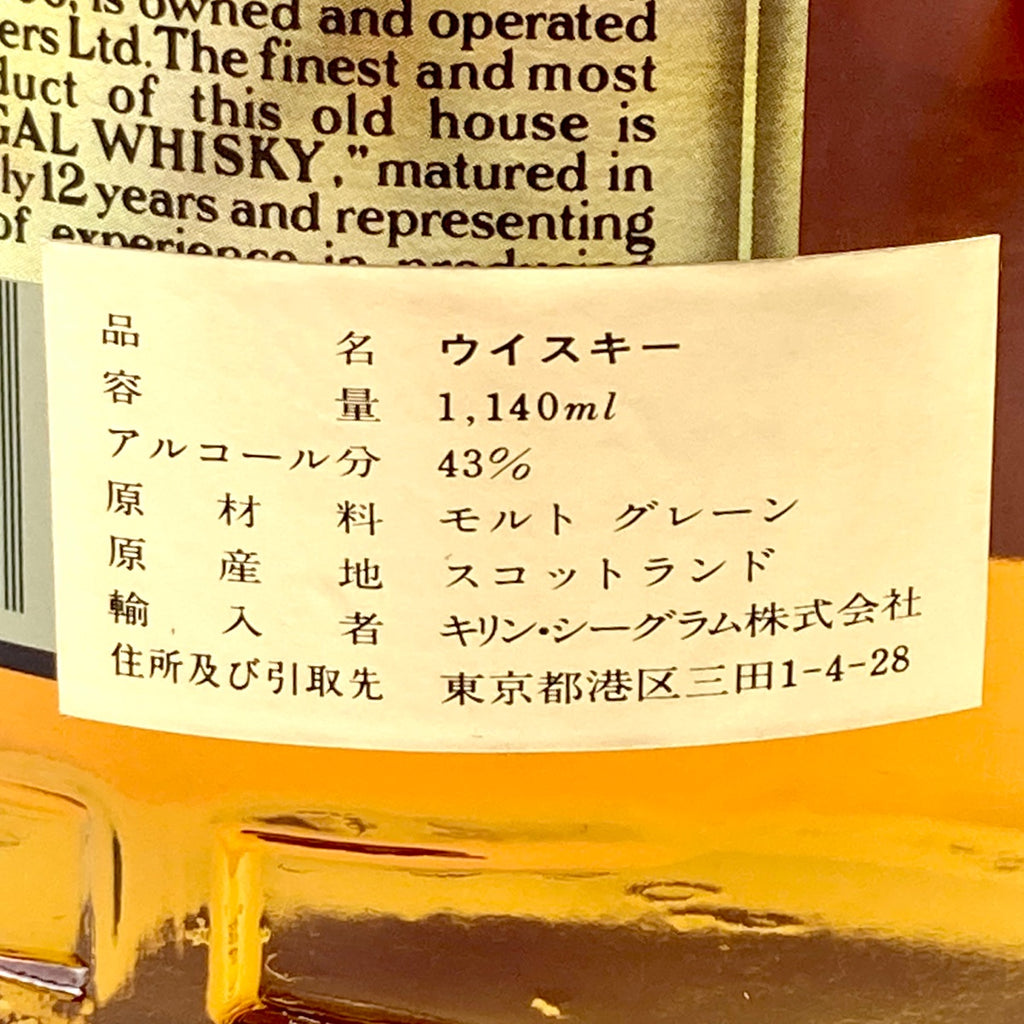 is owned and operated
Ltd. The finest and most
of this old house is
WHISKY," matured in
12 years and representing
of experience in producing
品名 ウイスキー
容量 1,140ml
アルコール分 43%
原材料 モルト グレーン
原産地 スコットランド
輸入者 キリン・シーグラム株式会社
住所及び引取先 東京都港区三田1-4-28